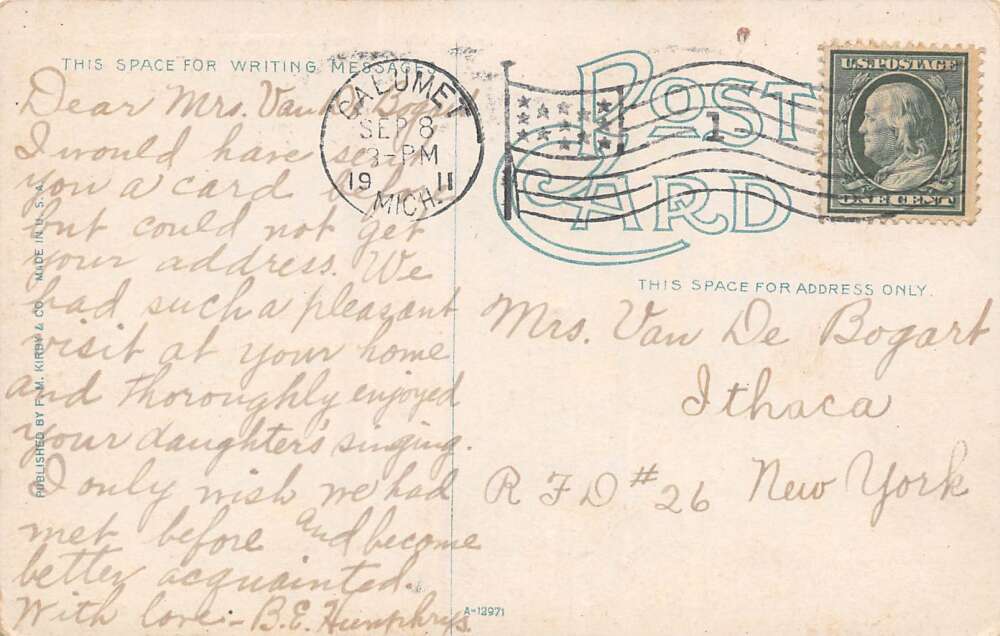 THIS SPACE FOR WRITING MESSAGE
Dear Mrs. Van De Bogart
I would have sent
you a card before
but could not get
your address. We
had such a pleasant
visit at your home
and thoroughly enjoyed
your daughter's singing.
I only wish we had
met before and become
better acquainted.
With love - B.E. Humphrys.
PUBLISHED BY F. M. KIRBY & CO. MADE IN U. S. A.
CALUMET
SEP 8
3-PM
19 11
MICH.
1
POST
CARD
U.S. POSTAGE
ONE CENT
THIS SPACE FOR ADDRESS ONLY.
Mrs. Van De Bogart
Ithaca
R F D #26 New York
A-12971